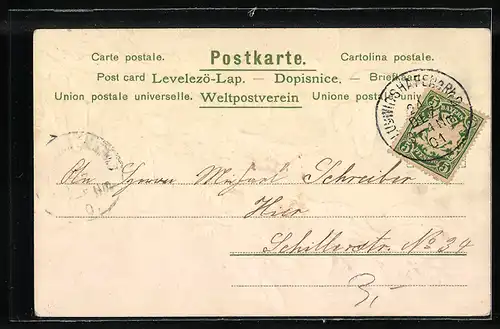 Carte postale. Postkarte. Cartolina postale.
Post card Levelezö-Lap. — Dopisnice. — Briefkaart
Union postale universelle. Weltpostverein Unione postale univ
LUDWIGSHAFEN
An Herrn Michael Schreiber
Hier
Schillerstr. No 34
3,-